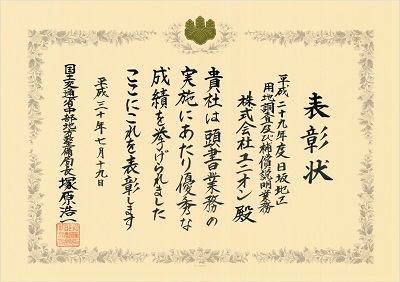 表彰状
平成二十九年度日坂地区
用地調査及び補償説明業務
株式会社ユニオン殿
貴社は頭書業務の
実施にあたり優秀な
成績を挙げられました
ここにこれを表彰します
平成三十年七月十九日
国土交通省中部地方整備局長 塚原浩一